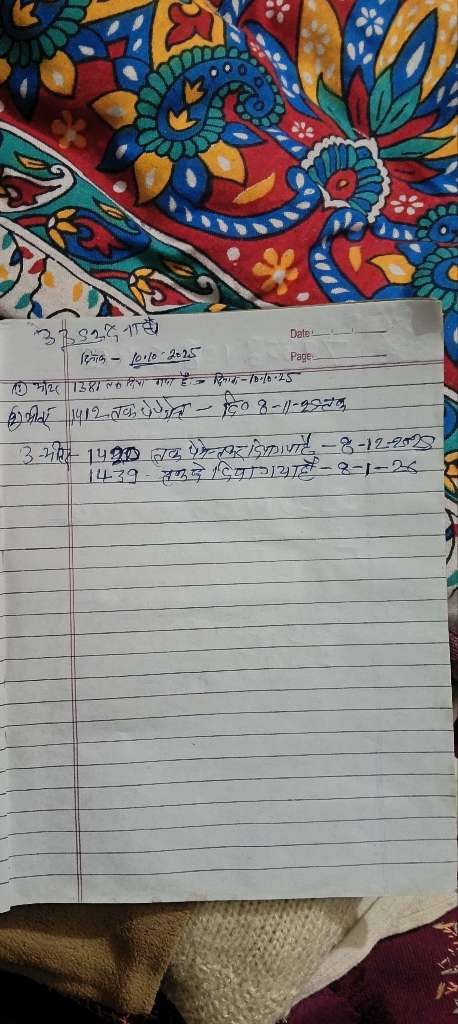 Date:
दिनांक - 10.10.2025
Page:
(1) मीटर 1381 तक दिया गया है - दिनांक - 10.10.25
(2) मीटर 1412 तक पेमेन्ट - दि० 8-11-25 तक
3- मीटर 1420 तक पेमेन्ट कर दिया गया है - 8-12-2025
1439 तक दे दिया गया है - 8-1-26